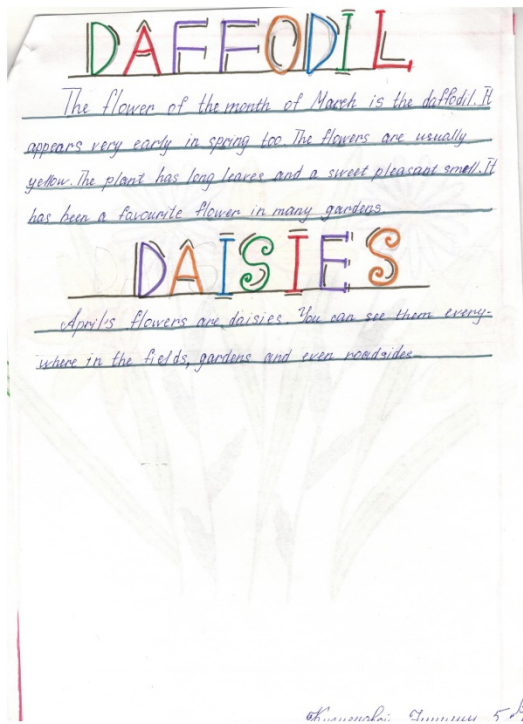 DAFFODIL
The flower of the month of March is the daffodil. It
appears very early in spring too. The flowers are usually
yellow. The plant has long leaves and a sweet pleasant smell. It
has been a favourite flower in many gardens.
DAISIES
April's flowers are daisies. You can see them every-
where in the fields, gardens and even roadsides.
5